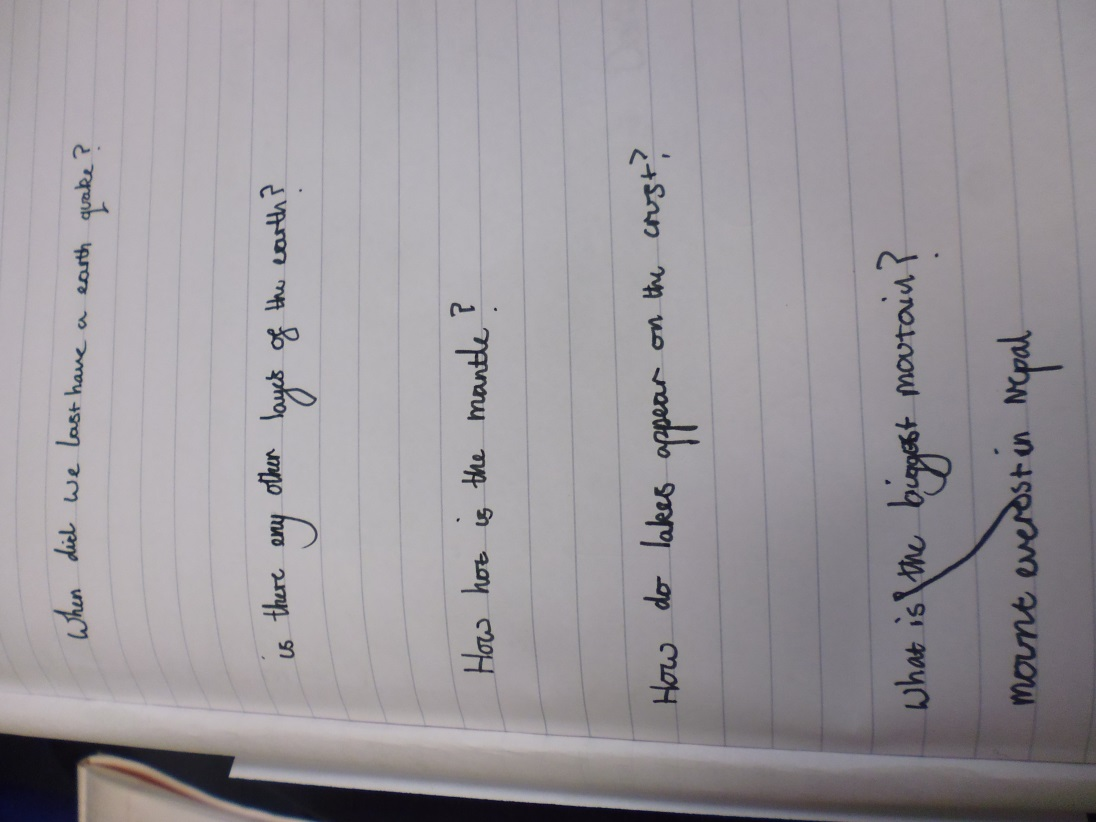 When did we last have a earth quake?
is there any other layes of the earth?
How hot is the mantle?
How do lakes appear on the crust?
What is the biggest moutain?
mount everest in Nepal